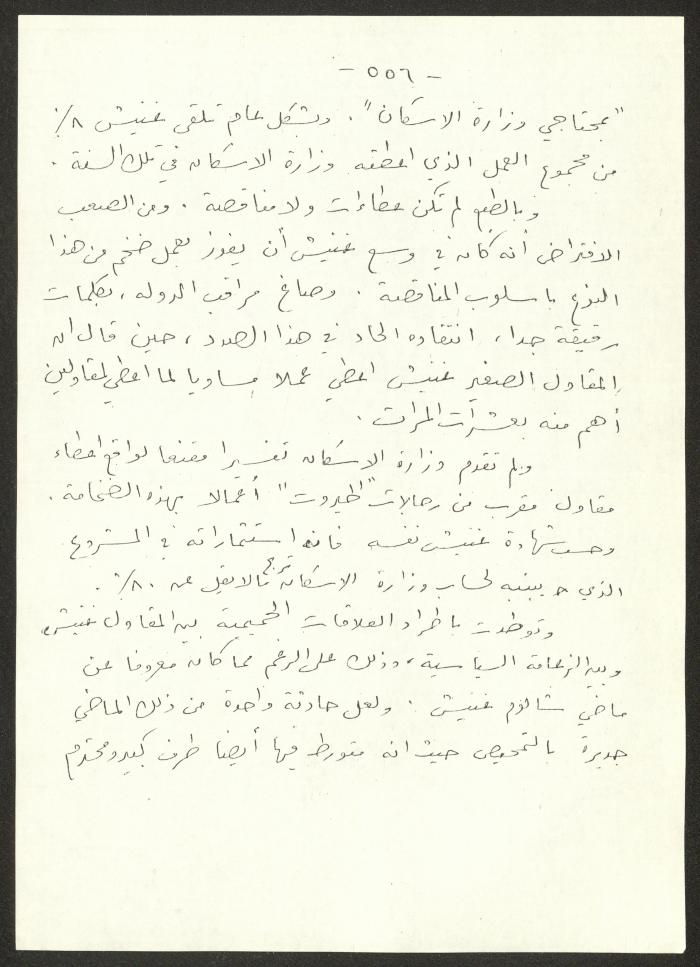 - ٥٥٦ -
"محتاجي وزارة الاسكان". وبشكل عام تلقى غنيش ٨٪
من مجموع العمل الذي اعطته وزارة الاسكان في تلك السنة.
وبالطبع لم تكن عطاءات ولا مناقصة. ومن الصعب
الافتراض أنه كان في وسع غنيش أن يفوز بعمل ضخم من هذا
النوع باسلوب المناقصة. وصاغ مراقب الدولة، بكلمات
رقيقة جدا، انتقاده الحاد في هذا الصدد، حين قال ان
المقاول الصغير غنيش اعطي عملا مساويا لما اعطي لمقاولين
أهم منه بعشرات المرات.
ولم تقدم وزارة الاسكان تفسيرا مقنعا لواقع اعطاء
مقاول مقرب من رجالات "حيروت" أعمالا بهذه الضخامة.
وحسب شهادة غنيش نفسه فان استثماراته في المشروع
الذي بينه لحساب وزارة الاسكان تربح ما لا يقل عن ٨٠٪.
وتوطدت باطراد العلاقات الحميمية بين المقاول غنيش
وبين الزعامة السياسية، وذلك على الرغم مما كان معروفا عن
ماضي شالوم غنيش. ولعل حادثة واحدة من ذلك الماضي
جديرة بالتمحيص حيث انه متورط فيها أيضا طرف كبير ومحترم